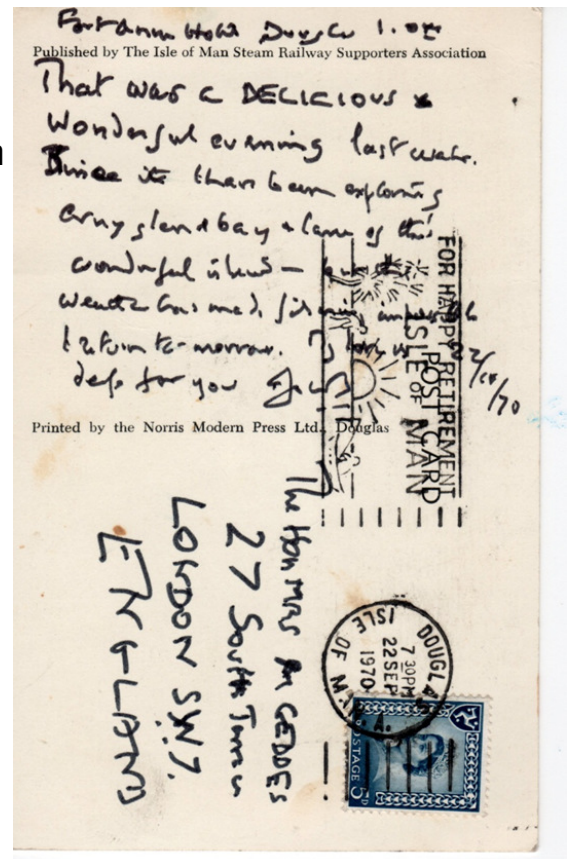 Fort Anne Hotel Douglas I.O.M
Published by The Isle of Man Steam Railway Supporters Association
That was a DELICIOUS &
wonderful evening last week.
Since it I have been exploring
every glen & bay & lane of this
wonderful island — but the
weather has made fishing
I return to-morrow.
for you
22/ /70
Printed by the Norris Modern Press Ltd., Douglas
FOR HAPPY RETIREMENT
ISLE OF MAN
POST CARD
The Hon Mrs GEDDES
27 South
LONDON S.W.7.
ENGLAND
DOUGLAS
7 30PM
22 SEP
1970
ISLE OF MAN
POSTAGE 5D